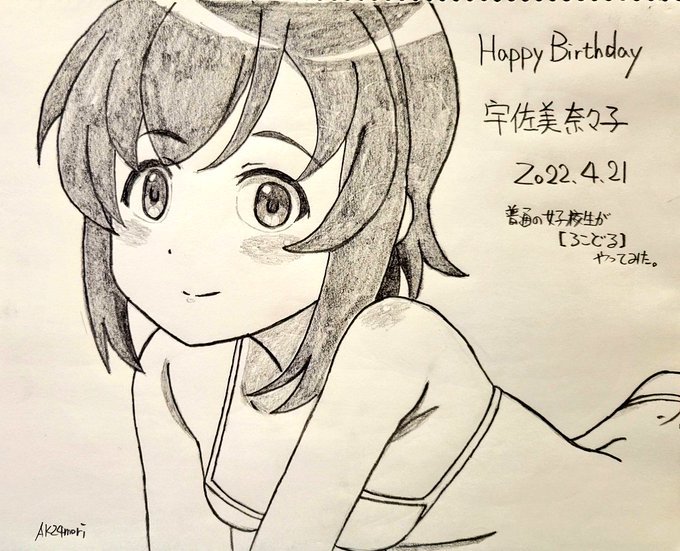 Happy Birthday
宇佐美奈々子
2022.4.21
普通の女子校生が
【ろこどる】
やってみた。
AK24mori